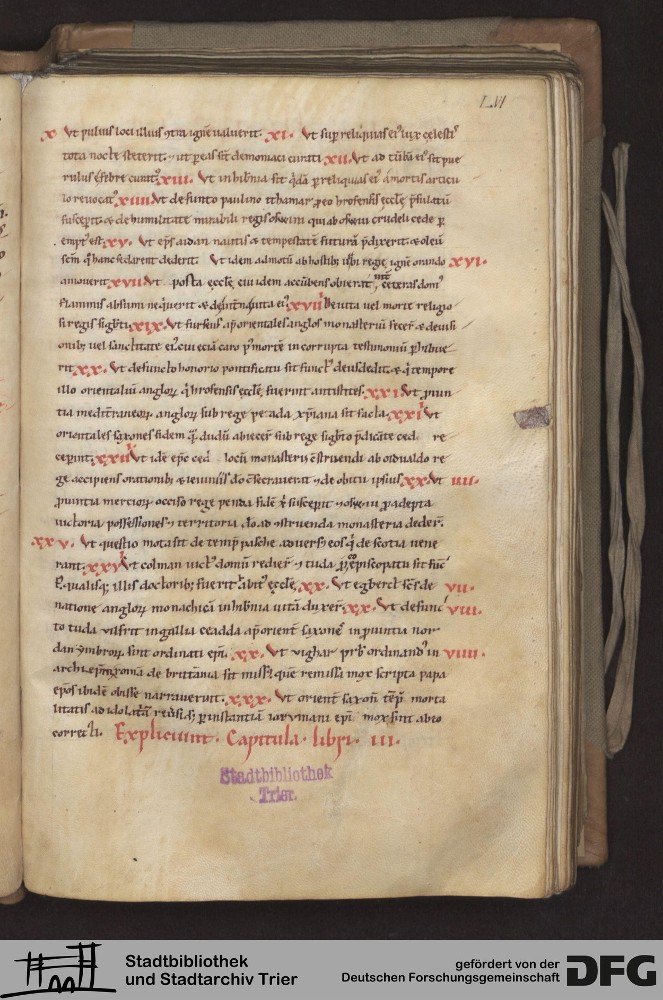 LVI
x Vt puluis loci illius ꝯtra ignē ualuerit. xi. Vt sup reliquias ei' lux celesti'
tota nocte steterit. ⁊ ut p eas sīt demoniaci curati xii. Vt ad tūbā ei' sit pue
rulus a febre curat'. xiii. Vt in hibnia sit qdā p reliquias ei' a mortis articu
lo reuocat' xiiii Vt defunto paulino ithamar p eo hrofensis eccle psulatū
susceperit. & de humilitate mirabili regis osuuini qui ab osuiu crudeli cede p
empt' est. xv. Vt eps aidan nautis & tempestatē futurā pdixerit & oleū
scm q hanc sedarent dederit. Vt idem admotū ab hostib; urbi regie ignē orando xvi.
amouerit. xvii Vt posta eccle cui idem accūbens obierat ceteras dom'
flammis absumi nequerit & de int'na uita ei' xviii De uita uel morte religio
si regis sigbti. xix. Vt furseus ap orientales anglos monasteriū fecerit & de uisi
onib; uel sanctitate ei' cui etiā caro p' mortē in corrupta testimoniū phibue
rit. xx. Vt defuncto honorio pontificatu sit funct' deusdedit. & q tempore
illo orientaliū anglorꝝ q hrofensis eccle fuerint antistites. xxi Vt puin
tia mediterraneorꝝ anglorꝝ sub rege peada xpiana sit facta. xxii Vt
orientales saxones fidem quā dudū abiecerāt sub rege sigbto pdicāte ced re
ceperint. xxiii Vt idē epc ced locū monasterij cstruendi ab oidualdo re
ge accipiens orationib; & ieiuniis do csecrauerat ⁊ de obitu ipsius xx Vt iiii.
puintia merciorꝝ occiso rege penda fidē xi susceperit ⁊ osuuiu p adepta
uictoria possessiones ⁊ territoria do ad cstruenda monasteria dederit.
xxv. Vt questio mota sit de temp pasche aduersus eos qi de scotia uene
rant. xxvi Vt colman uict' domū redierit ⁊ tuda p eo episcopatu sit funct'
& qualisq; illis doctorib; fuerit habit' eccle. xx. Vt egberct' scs de vii.
natione anglorꝝ monachicā in hibnia uitā duxerit. xx. Vt defunc viii.
to tuda uilfrit in gallia ceadda ap orient' saxones in puintia nor
dan ymbrorꝝ sint ordinati epi. xx. Vt uighar prb' ordinand' in viiii.
archi epm romā de brittania sit missus que remissa mox scripta papa
epos ibidē obisse narrauerint. xxx. Vt orient' saxoni tēp' morta
litatis ad idolatriā reuersi s; p instantiā iarumani epi mox sint ab erro
correcti. Expliciunt. Capitula. libri. III.
Stadtbibliothek
Trier.
Stadtbibliothek
und Stadtarchiv Trier
gefördert von der
Deutschen Forschungsgemeinschaft
DFG